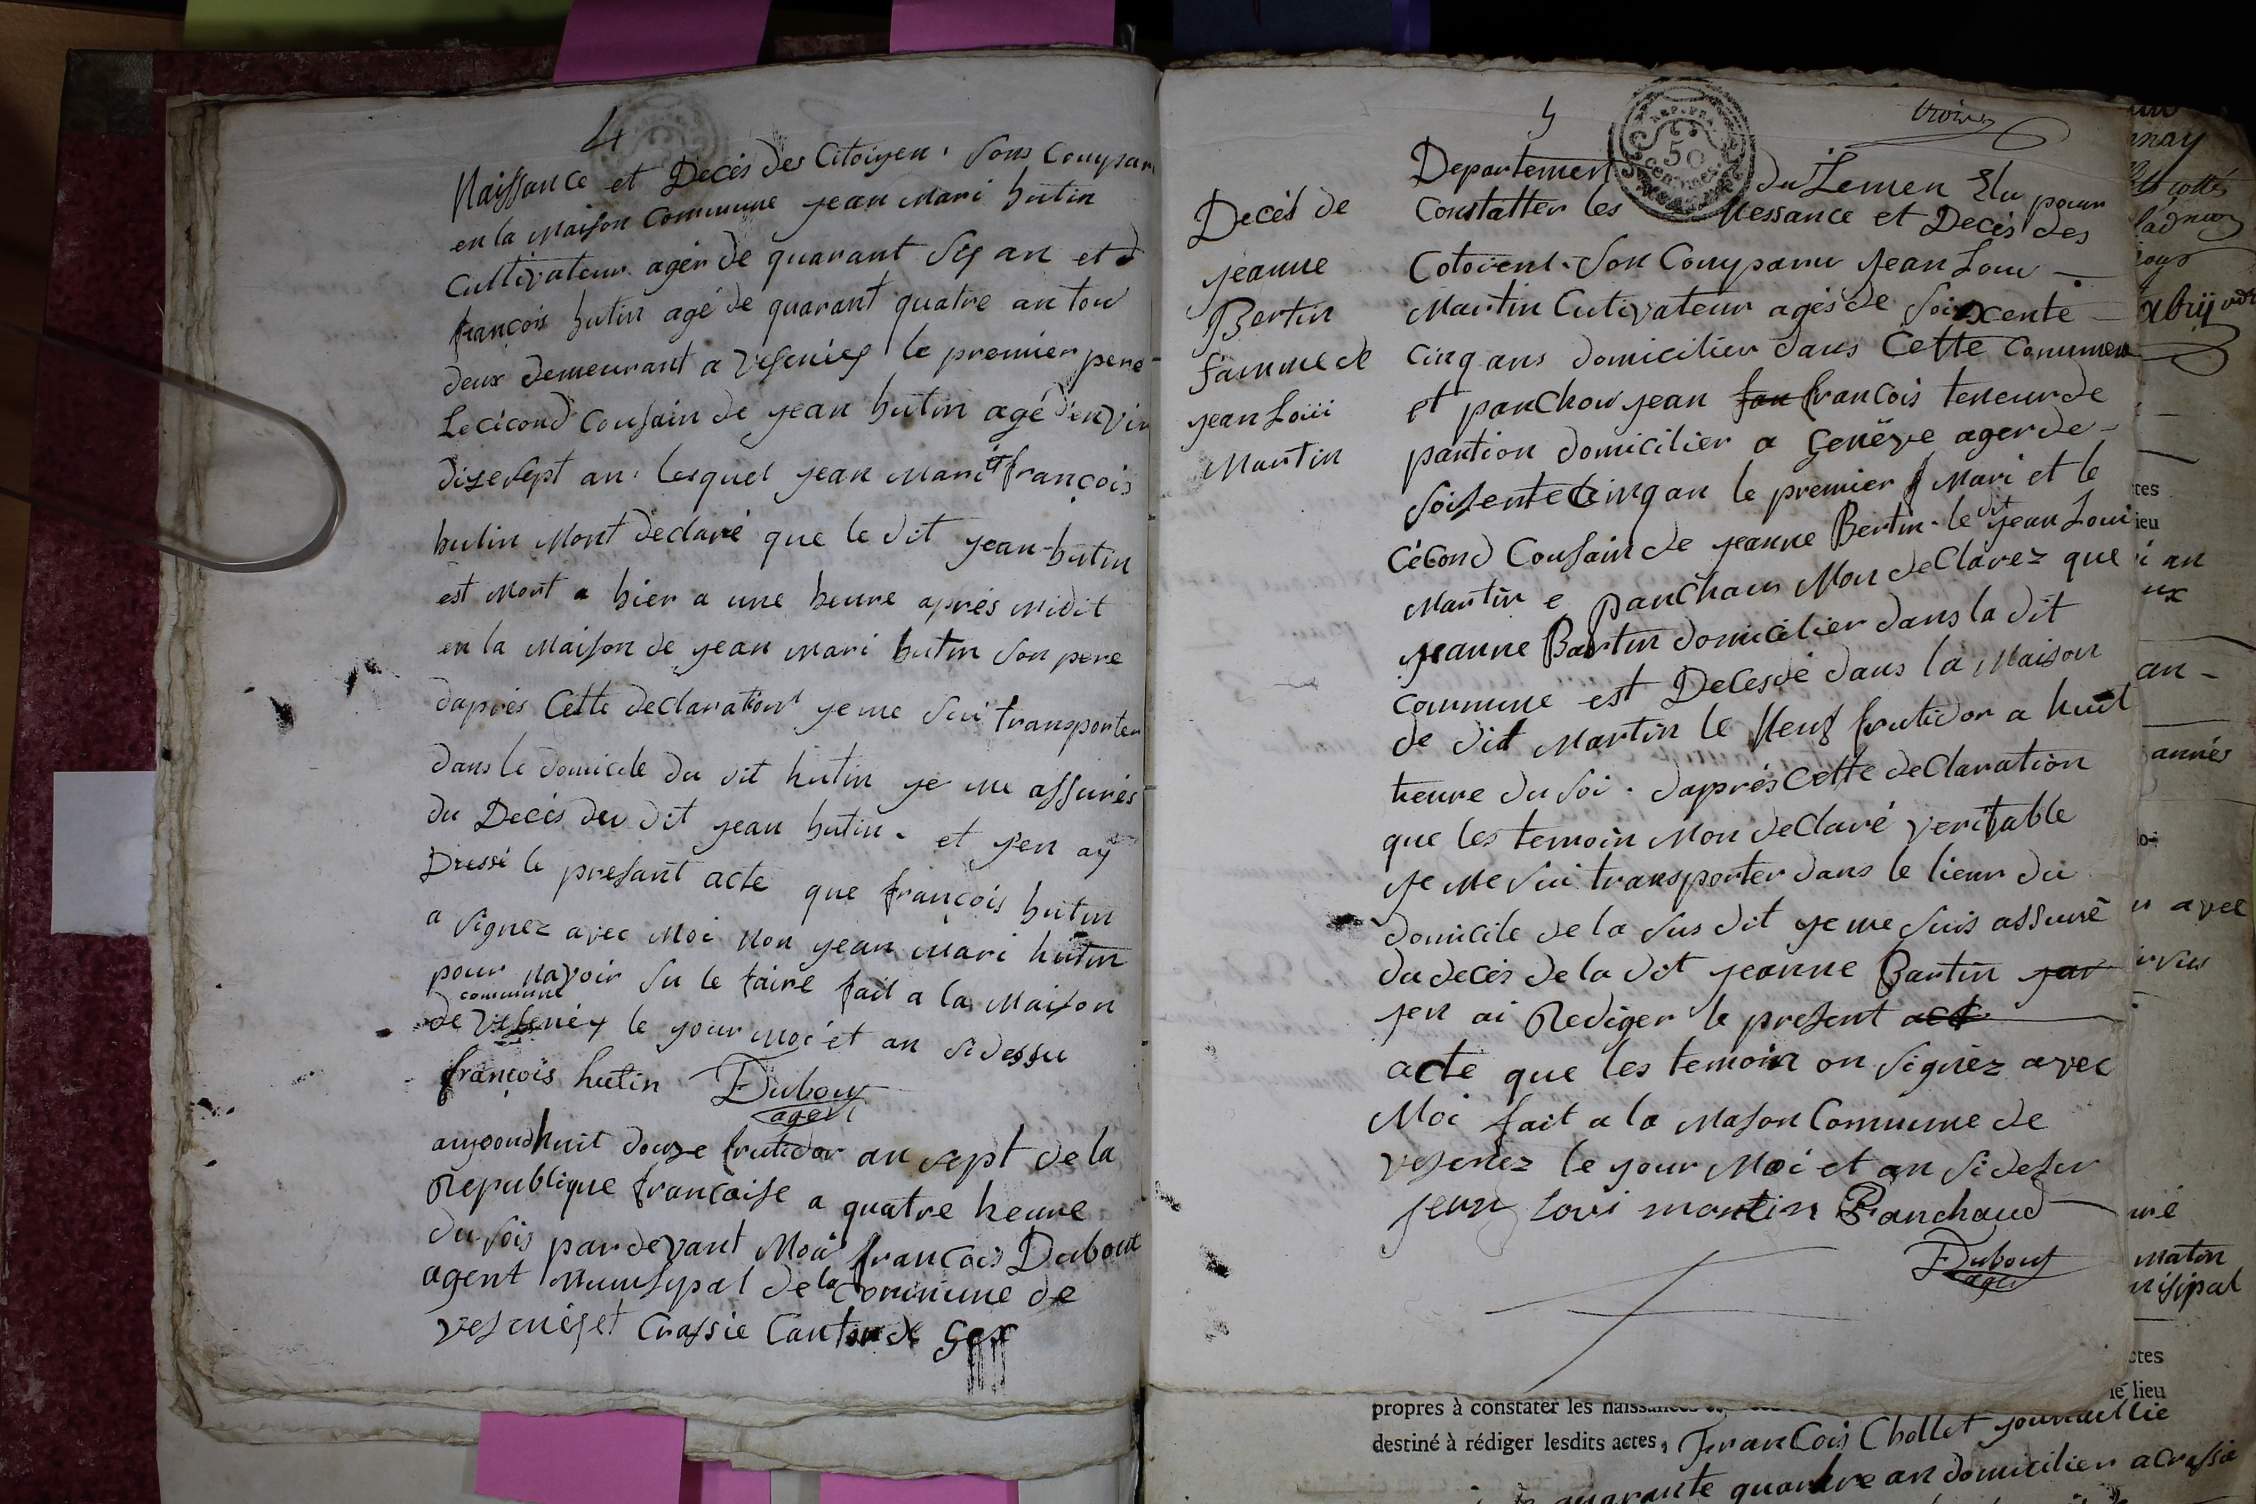 4
Naissance et Decés des Citoiyen. sons Compar
en la Maison Commune jean Mari hutin
Cultivateur agér de quarant Sis an et d
françois hutin agé de quarant quatre an tou
deux demeurant a Vesenéx le premier pere
Le cécond Cousain de jean hutin agé d'envir
dizesept an. lesquel jean Mari et françois
hutin Mont declaré que le dit jean hutin
est Mort a hier a une heure aprés midit
en la Maison de jean Mari hutin son pere
daprés Cette declaration je me Sui transporter
dans le domicile du dit hutin je me assurés
du Decés du dit jean hutin. et jen ay
Dressé le presant acte que françois hutin
a signez avec Moi Non jean Mari hutin
pour navoir su le faire fait a la Maison
commune
de Vesenéx le jour Moi et an si dessu
françois hutin Dubout
agent
aujoordhuit douze frutidor an sept de la
Republique francaise a quatre heure
du sois pardevant Moi françois Dubout
agent Munisipal de la Commune de
vesenéset Crassie Canton de Gex
5
REP. FRA.
50
CENTIMES
trois
Decés de
jeanne
Bertin
famme de
jean Loui
Martin
Departement du Lemen Elu pour
Constatter les Nessance et Decés des
Cotoient. Son Comparu jean Loui
Martin Cutivateur agés de Soixcente
Cinq ans domicilier dans Cette Commen
et panChou jean fan francois teneur de
pantion domicilier a Genëve ager de
Soisente Cinq an le premier Mari et le
Cécond Cousain de jeanne Bertin. le dit jean Loui
Martin e panChaus Mon deClarez que
jeanne Bartin domicilier dans la dit
Commune est Decesdé dans la Maison
de dit Martin le Neuf frutidor a huit
heure du Soi. daprés Cette deClaration
que les temoin Mon deClaré veritable
je Me Sui transporter dans le lieur du
domicile de la Sus dit je me Suis assuré
du decés de la dit jeanne Bartin jar
jen ai Rediger le present act
acte que les temoin on Signéz avec
Moi fait a la Mason Commune de
vesenez le jour Moi et an Si desur
jean Loui martin Panchaud
Dubout
agent
propres à constater les naissances
destiné à rédiger lesdits actes, François Chollet journallie
quarante quatre an domicilier a Crassie
nnay
tes
ieu
i an
ux
an
annés
avec
Matin
nisipal
ctes
le lieu